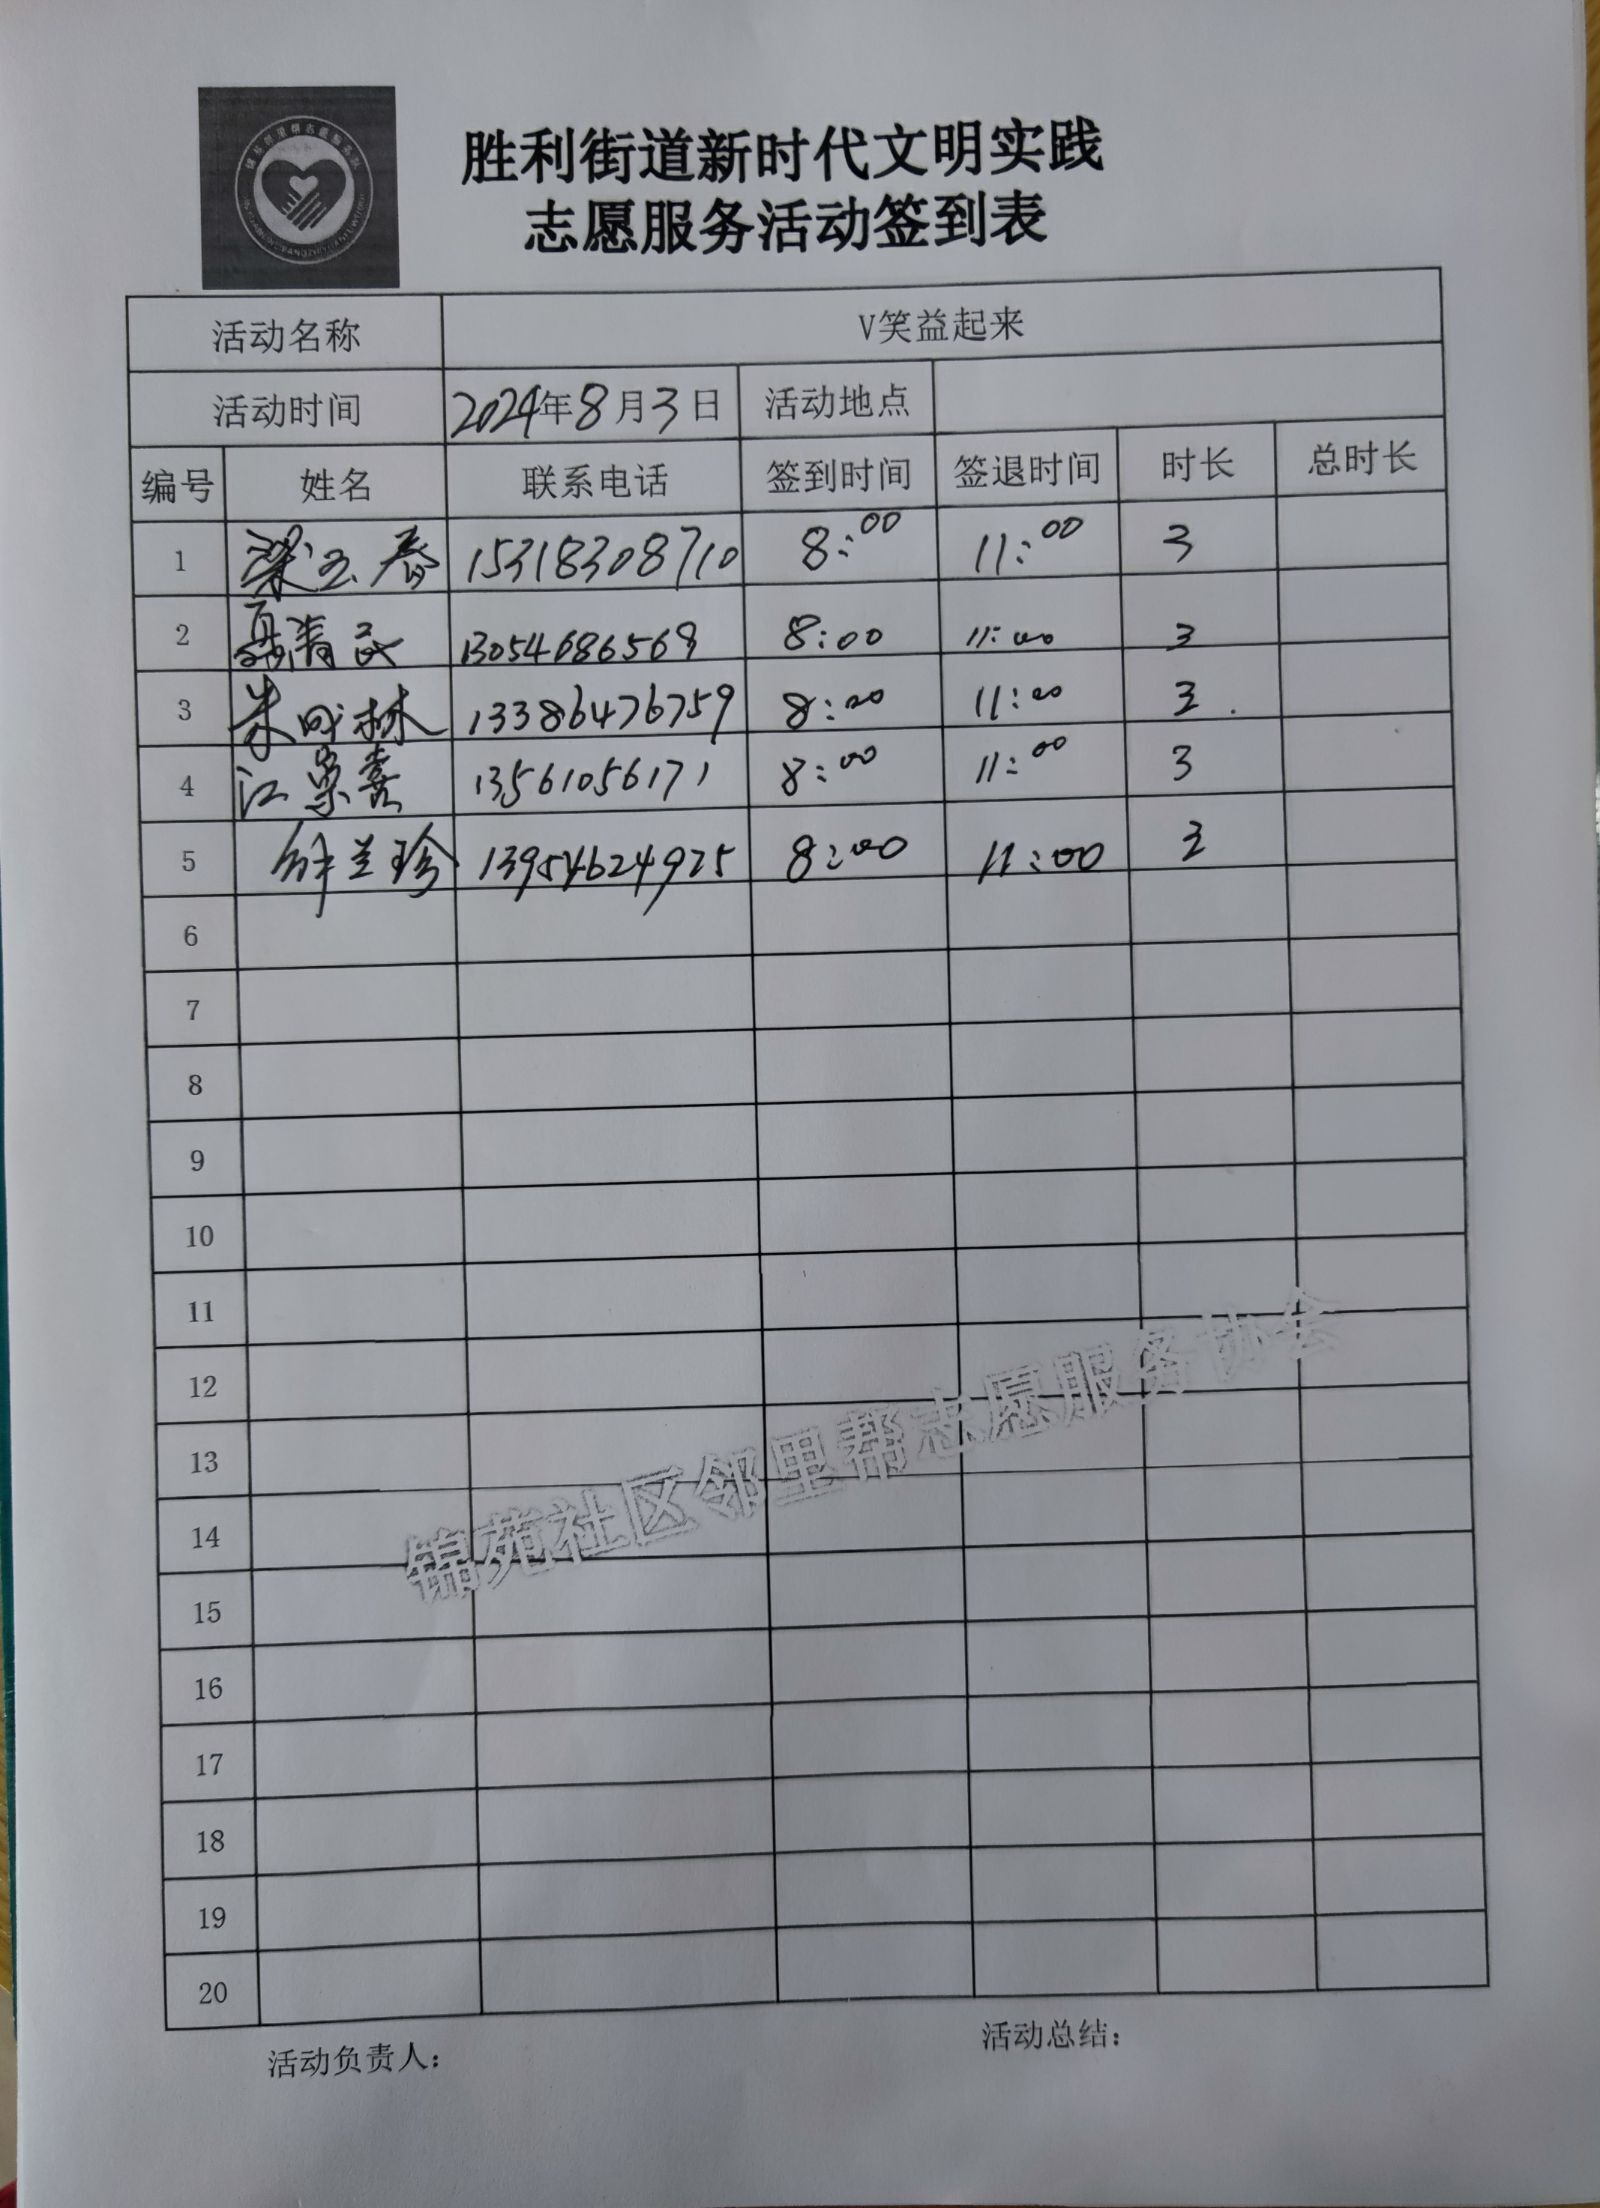 胜利街道新时代文明实践
志愿服务活动签到表
活动名称 V笑益起来
活动时间 2024年8月3日 活动地点
编号 姓名 联系电话 签到时间 签退时间 时长 总时长
1 梁玉春 15318308710 8:00 11:00 3
2 聂清民 13054686569 8:00 11:00 3
3 朱时林 13386476759 8:00 11:00 3
4 江崇喜 13561056171 8:00 11:00 3
5 钟兰珍 13954624925 8:00 11:00 3
6
7
8
9
10
11
12
13
14
15
16
17
18
19
20
锦苑社区邻里帮志愿服务协会
活动负责人： 活动总结：